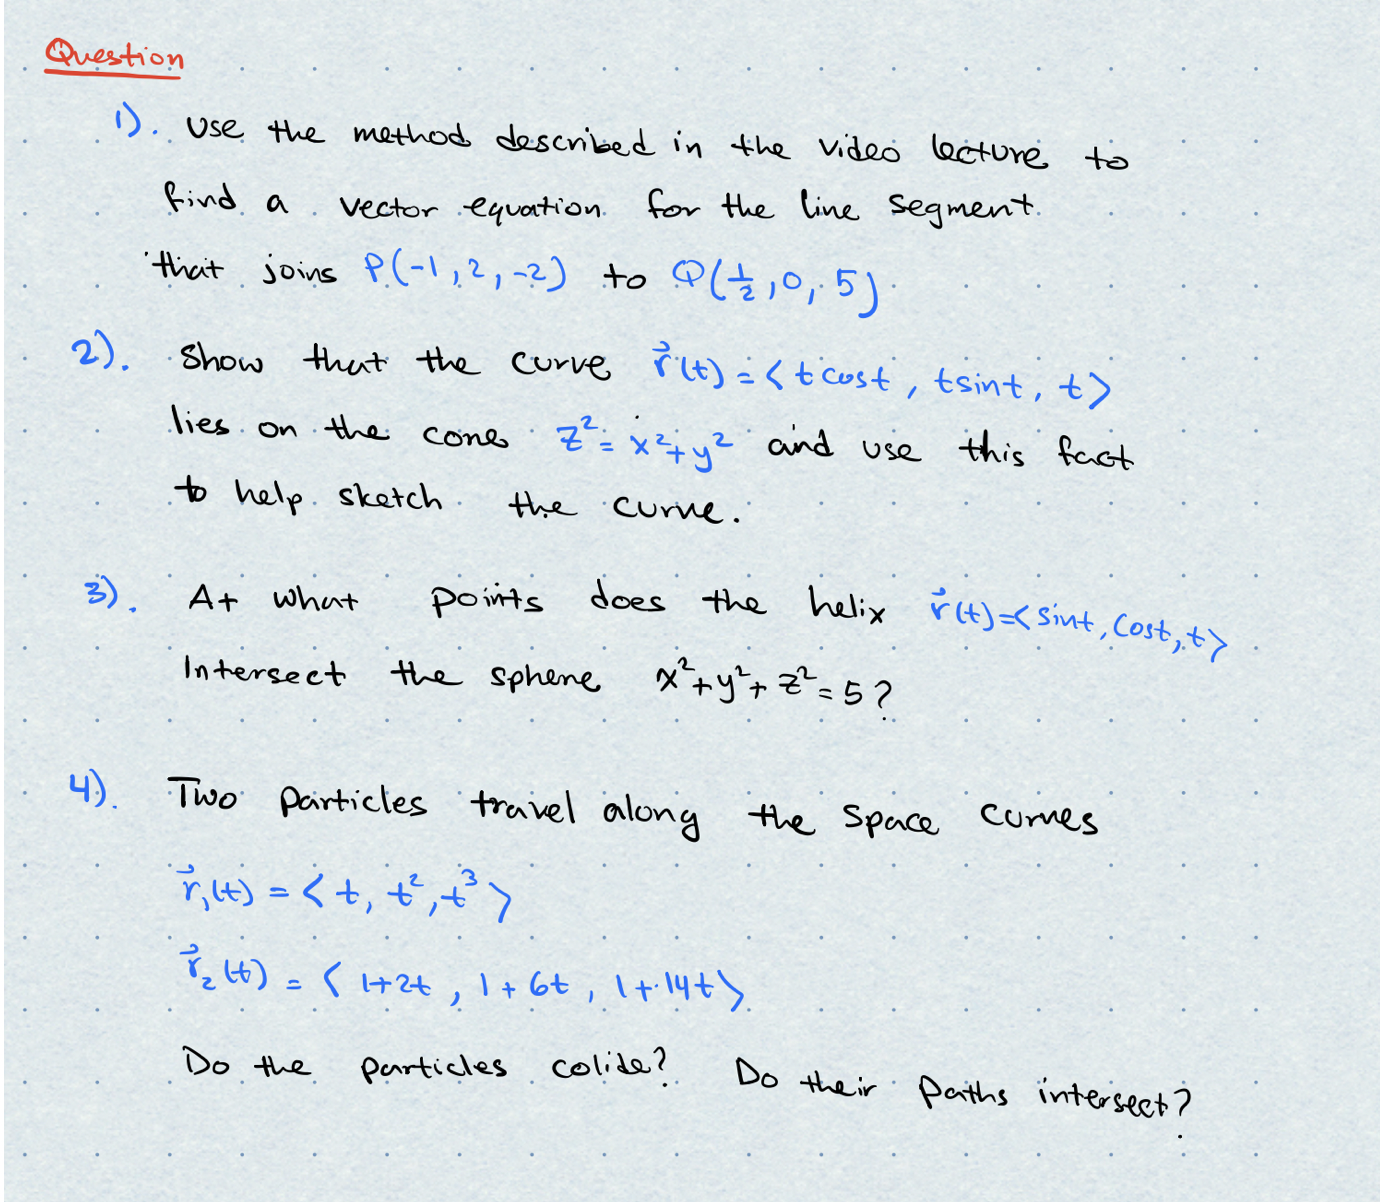 Question
1). Use the method described in the video lecture to
find a vector equation for the line segment
that joins P(-1, 2, -2) to Q(1/2, 0, 5)
2). Show that the curve r⃗(t) = <t cost, t sint, t>
lies on the cone z² = x² + y² and use this fact
to help sketch the curve.
3). At what points does the helix r⃗(t) = <sint, cost, t>
Intersect the sphere x² + y² + z² = 5?
4). Two particles travel along the space curves
r⃗₁(t) = <t, t², t³>
r⃗₂(t) = <1+2t, 1+6t, 1+14t>
Do the particles colide? Do their paths intersect?